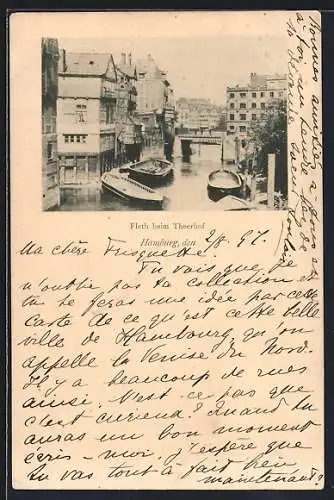 Fleth beim Theerhof
Hamburg, den 2/8 97.
Ma chère Frisquette.
Tu vois que je
n'oublie pas ta collection et
tu te feras une idée par cette
carte de ce qu'est cette belle
ville de Hambourg qu'on
appelle la Venise du Nord.
Il y a beaucoup de rues
ainsi. N'est ce pas que
c'est curieux? Quand tu
auras un bon moment
écris-moi. J'espère que
tu vas tout à fait bien
maintenant?
Bonnes amitiés à